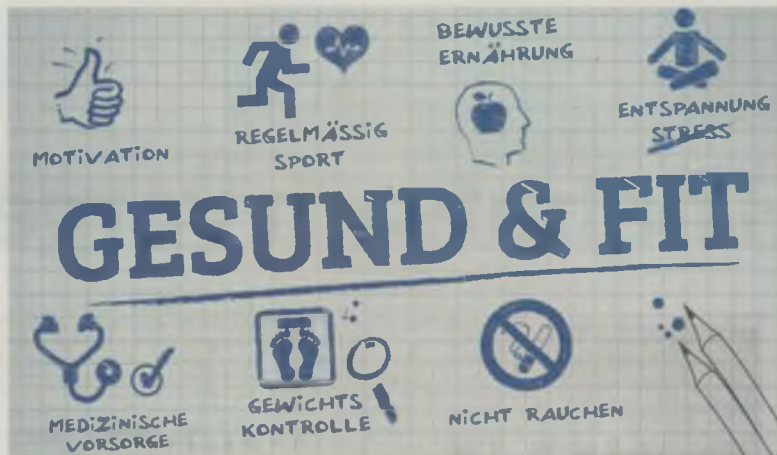 MOTIVATION
REGELMÄSSIG
SPORT
BEWUSSTE
ERNÄHRUNG
ENTSPANNUNG
STRESS
GESUND & FIT
MEDIZINISCHE
VORSORGE
GEWICHTS
KONTROLLE
NICHT RAUCHEN